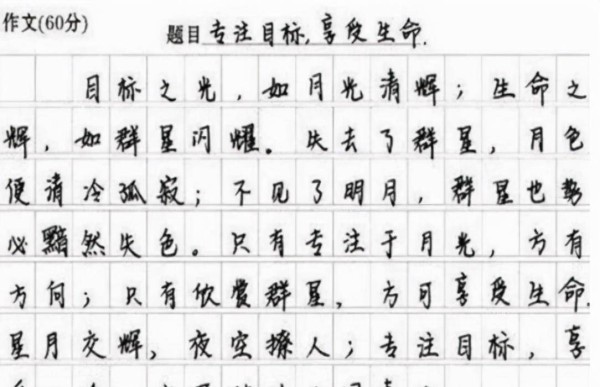 作文(60分)
题目 专注目标,享受生命.
目标之光,如月光清辉;生命之
辉,如群星闪耀。失去了群星,月色
便清冷孤寂;不见了明月,群星也势
必黯然失色。只有专注于月光,方有
方向;只有欣赏群星,方可享受生命.
星月交辉,夜空撩人;专注目标,享